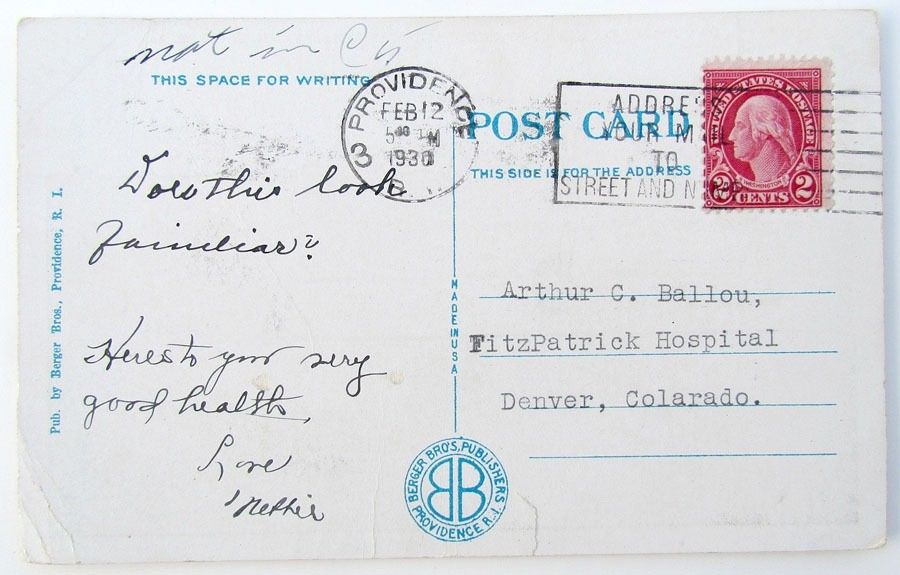 not in
THIS SPACE FOR WRITING
PROVIDENCE
FEB 12
1930
3
Does this look
familiar?
Heres to your very
good health,
Love
Nettie
Pub. by Berger Bros., Providence, R. I.
MADE IN USA
BERGER BRO'S, PUBLISHERS
PROVIDENCE R.I.
BB
POST CARD
THIS SIDE IS FOR THE ADDRESS
ADDRESS
YOUR MAIL
TO
STREET AND
UNITED STATES POSTAGE
WASHINGTON
2 CENTS 2
Arthur C. Ballou,
FitzPatrick Hospital
Denver, Colarado.